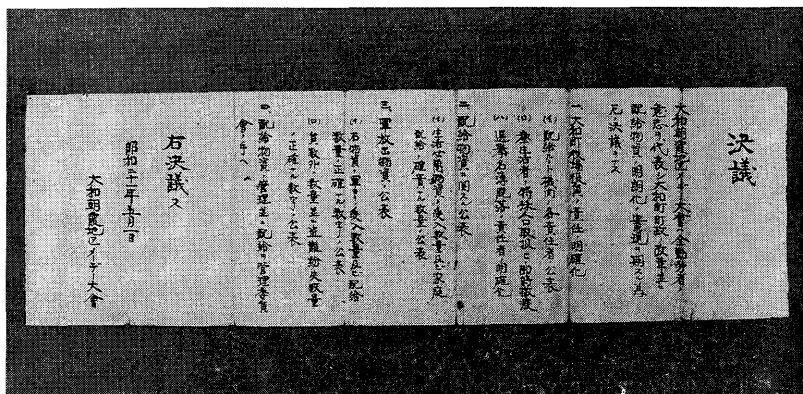 決議
大和朝霞地区メーデー大會ノ全勤労者ノ
意志ヲ代表シ大和町町政ノ改革並ニ
配給物資ノ明朗化ノ實現ヲ期スル為
左ノ決議ヲナス
一、大和町機構役員ノ責任ノ明確化
(イ) 配給ノ機関ノ各責任者ノ公表
(ハ) 責任者ノ明確化
二、配給物資ニ関スル公表
(イ) 生活必需物資ノ受入数量並ニ家庭
配給ノ確實ナル数量ノ公表
三、軍放出物資ノ公表
(イ) 右物資ノ軍ヨリ受入数量並ニ配給
数量ノ正確ナル数字ノ公表
(ロ) 数量並ニ盗難紛失数量
ノ正確ナル数字ノ公表
四、配給物資ノ管理並ニ配給ノ管理委員
會
右決議ス
昭和二十一年五月一日
大和朝霞地区メーデー大會